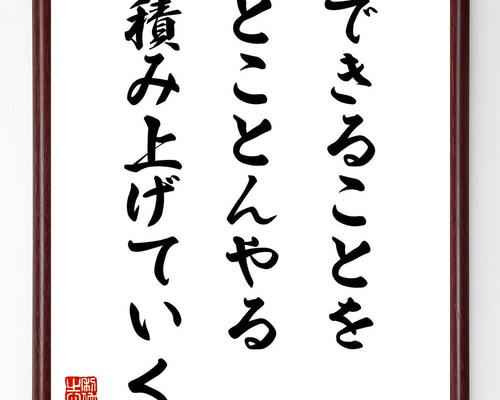 できることを
とことんやる
積み上げていく